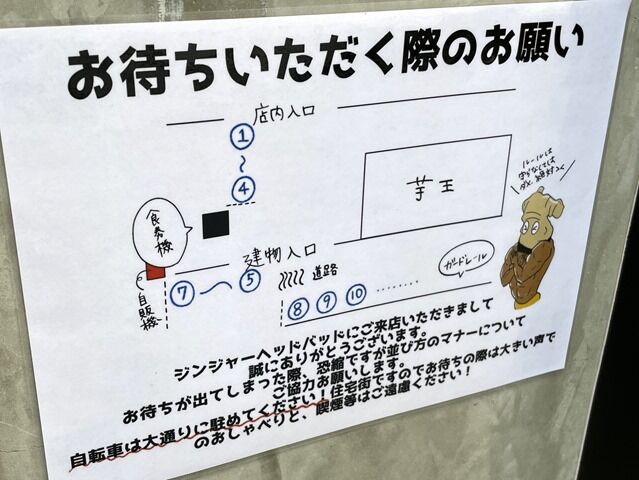 お待ちいただく際のお願い
店内入口
①
〜
④
芋王
ルールは
食券機
建物入口
自販機
⑦〜⑤
道路
ガードレール
⑧⑨⑩‥‥‥‥
ジンジャーヘッドバッドにご来店いただきまして
誠にありがとうございます。
お待ちが出てしまった際、恐縮ですが並び方のマナーについて
ご協力お願いします。
自転車は大通りに駐めてください!住宅街ですのでお待ちの際は大きい声で
のおしゃべりと、喫煙等はご遠慮ください!